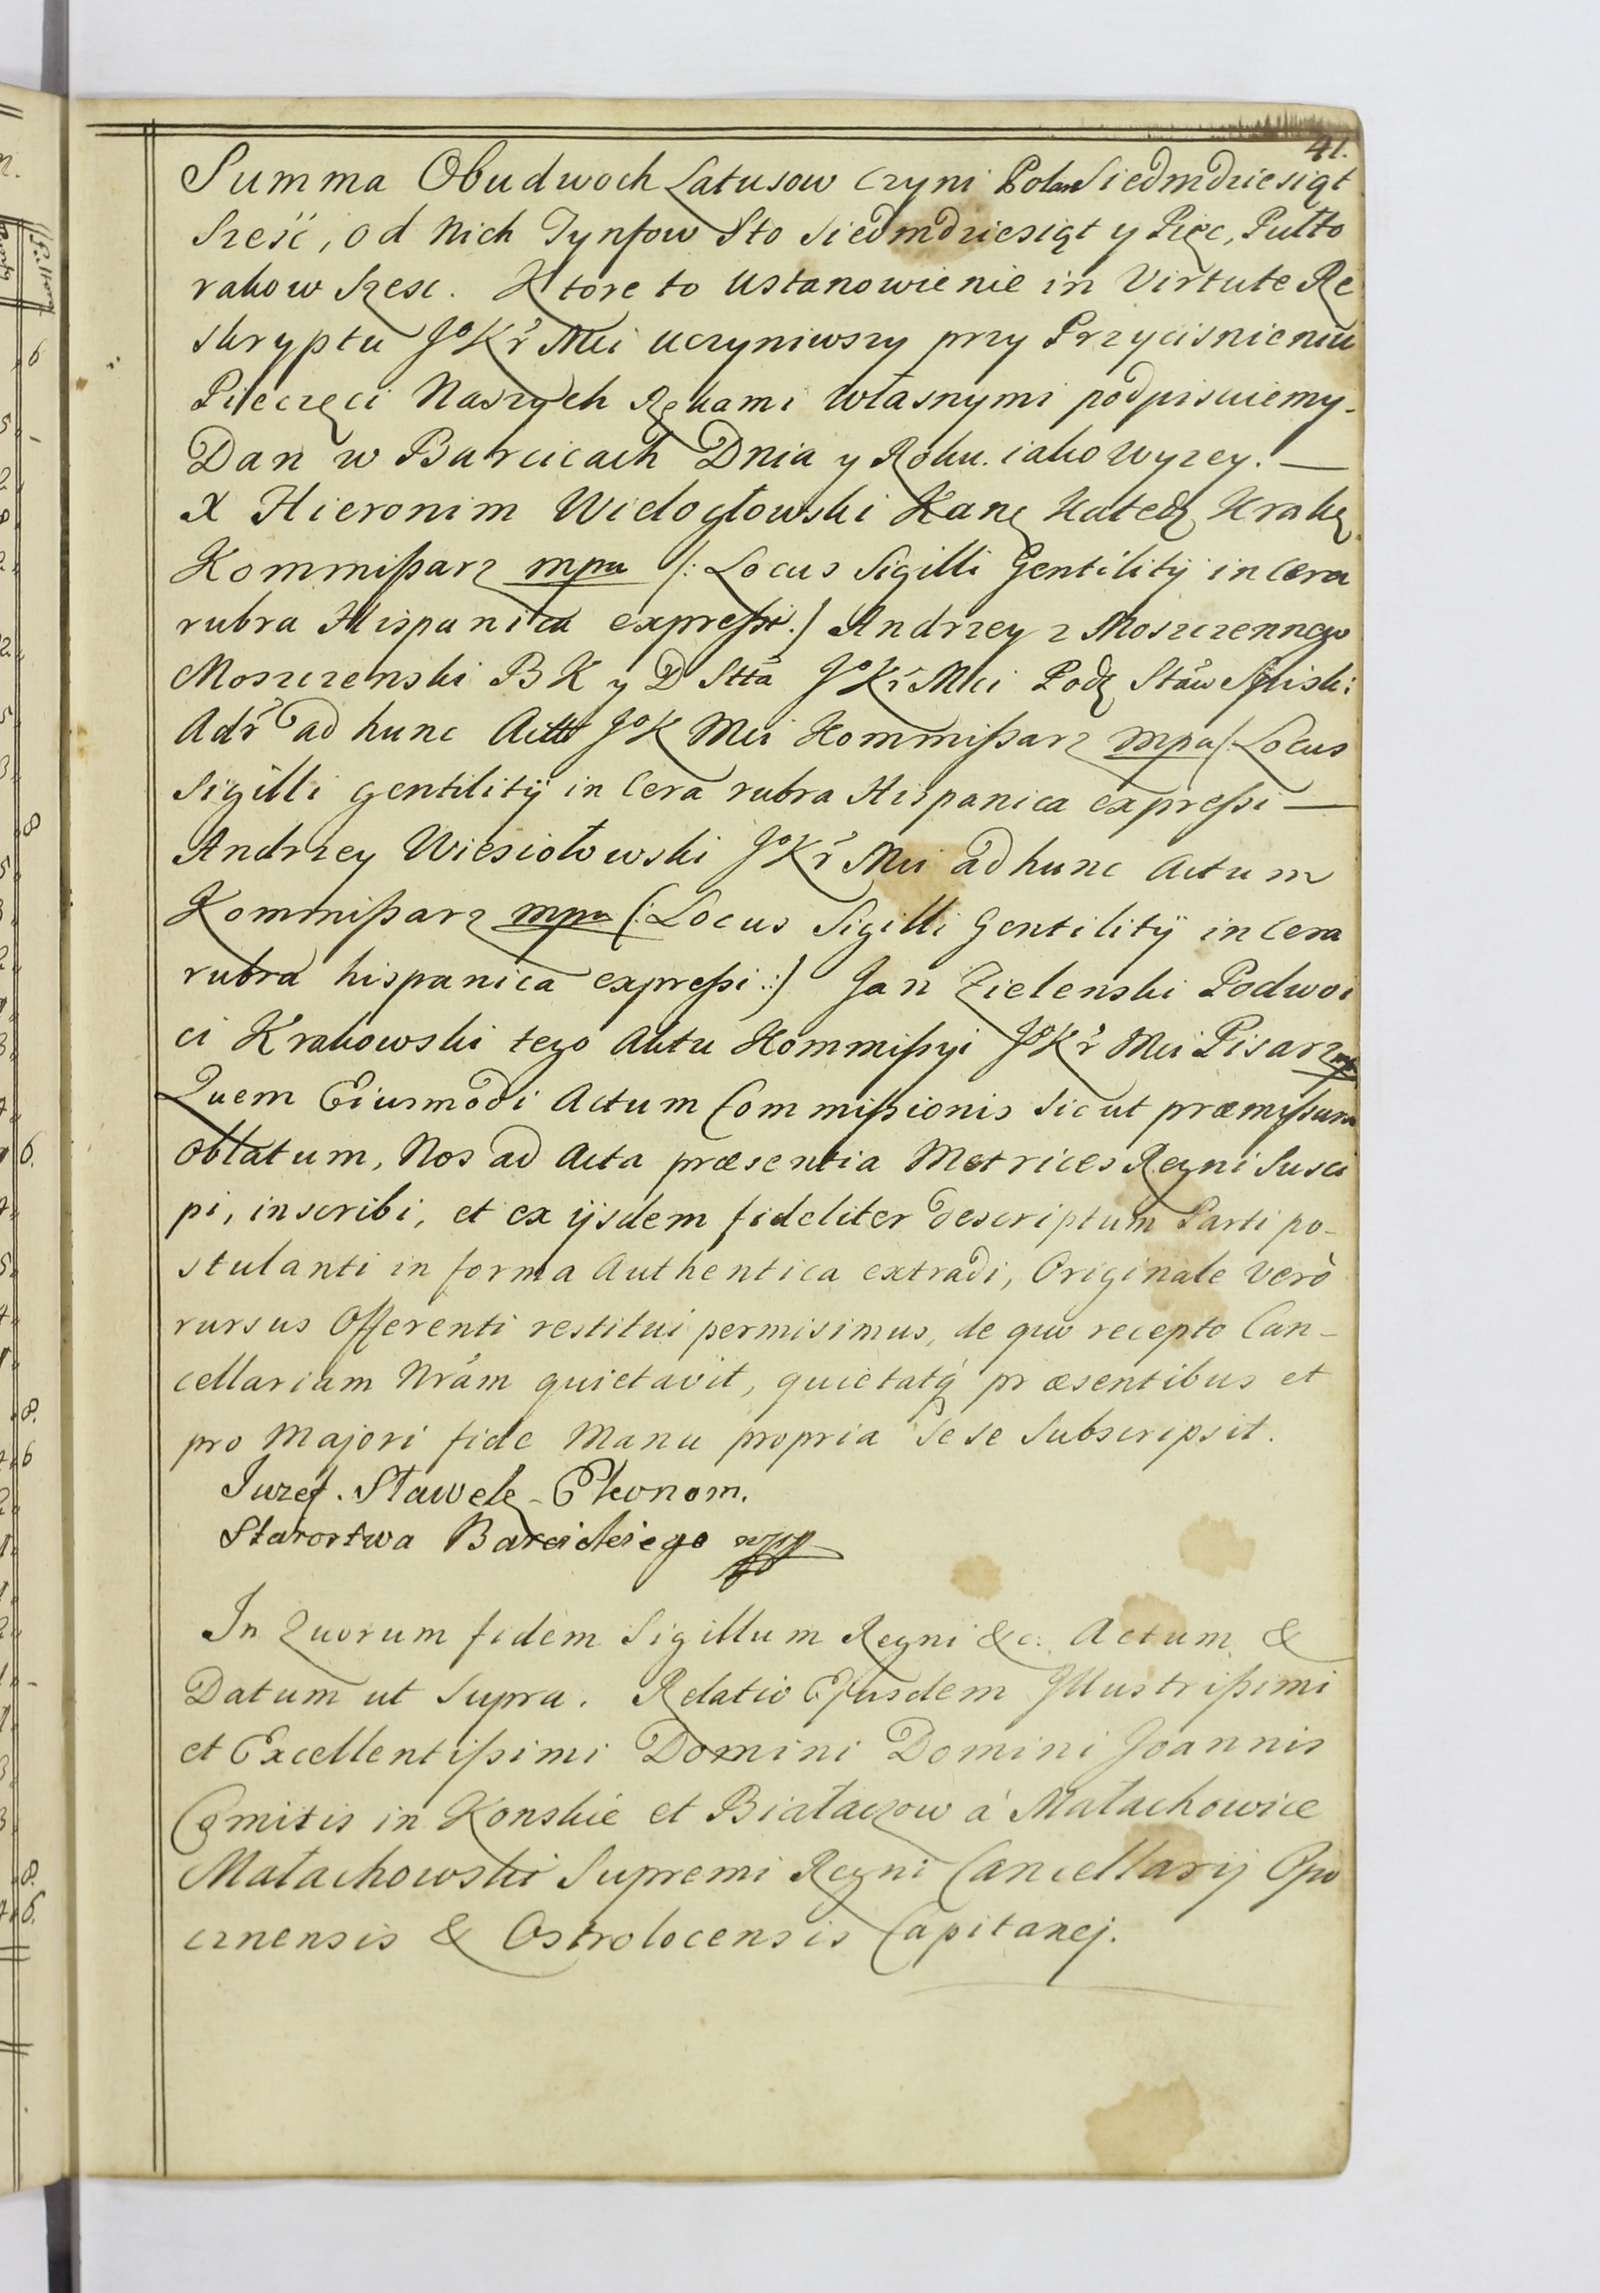 41.
Summa Obudwoch Latusow Czyni Polan Siedmdziesiąt
Sześć, od Nich Tynfow Sto Siedmdziesiąt y Pięc, Pułto
rakow Szesc. Ktore to Ustanowienie in Virtute Re
skryptu JoKr Mci uczyniwszy przy Przycisnieniu
Pieczęci Naszych Rękami własnymi podpisuiemy.
Dan w Barcicach Dnia y Roku iako wyzey. —
X Hieronim Wielogłowski Kan Kated Krak
Kommißarz mpa /: Locus Sigilli Gentilitij in Cera
rubra Hispanica expreßi :/ Andrzey z Moszczennego
Moszczenski B K y D Stta JoKr Mci Podź Staw Spisk:
Adr ad hunc Actu JoK Mci Kommißarz mpa /: Locus
Sigilli gentilitij in Cera rubra Hispanica expreßi —
Andrzey Wiesiołowski JoKr Mci ad hunc Actum
Kommißarz mpa (: Locus Sigilli Gentilitij in Cera
rubra hispanica expreßi :) Jan Zielenski Podwoi
ci Krakowski tego Aktu Kommißyi JoKr Mci Pisarz mp
Quem Eiusmodi Actum Commißionis Sicut præmißum
oblatum, Nos ad Acta præsentia Metrices Regni Susci
pi, inscribi, et ex ijsdem fideliter descriptum Parti po-
stulanti in forma Authentica extradi, Originale Verò
rursus Offerenti restitui permisimus, de quo recepto Can-
cellariam Nram quietavit, quietatq præsentibus et
pro Majori fide Manu propria Sese Subscripsit.
Juzef. Ekonom.
Starostwa Barcickiego mpp
In Quorum fidem Sigillum Regni &c. Actum &
Datum ut Supra. Relatio Ejusdem Illustrißimi
et Excellentißimi Domini Domini Joannis
Comitis in Konskie et Białaczow à Małachowice
Małachowski Supremi Regni Cancellarij Opo
cznensis & Ostrolocensis Capitanej.